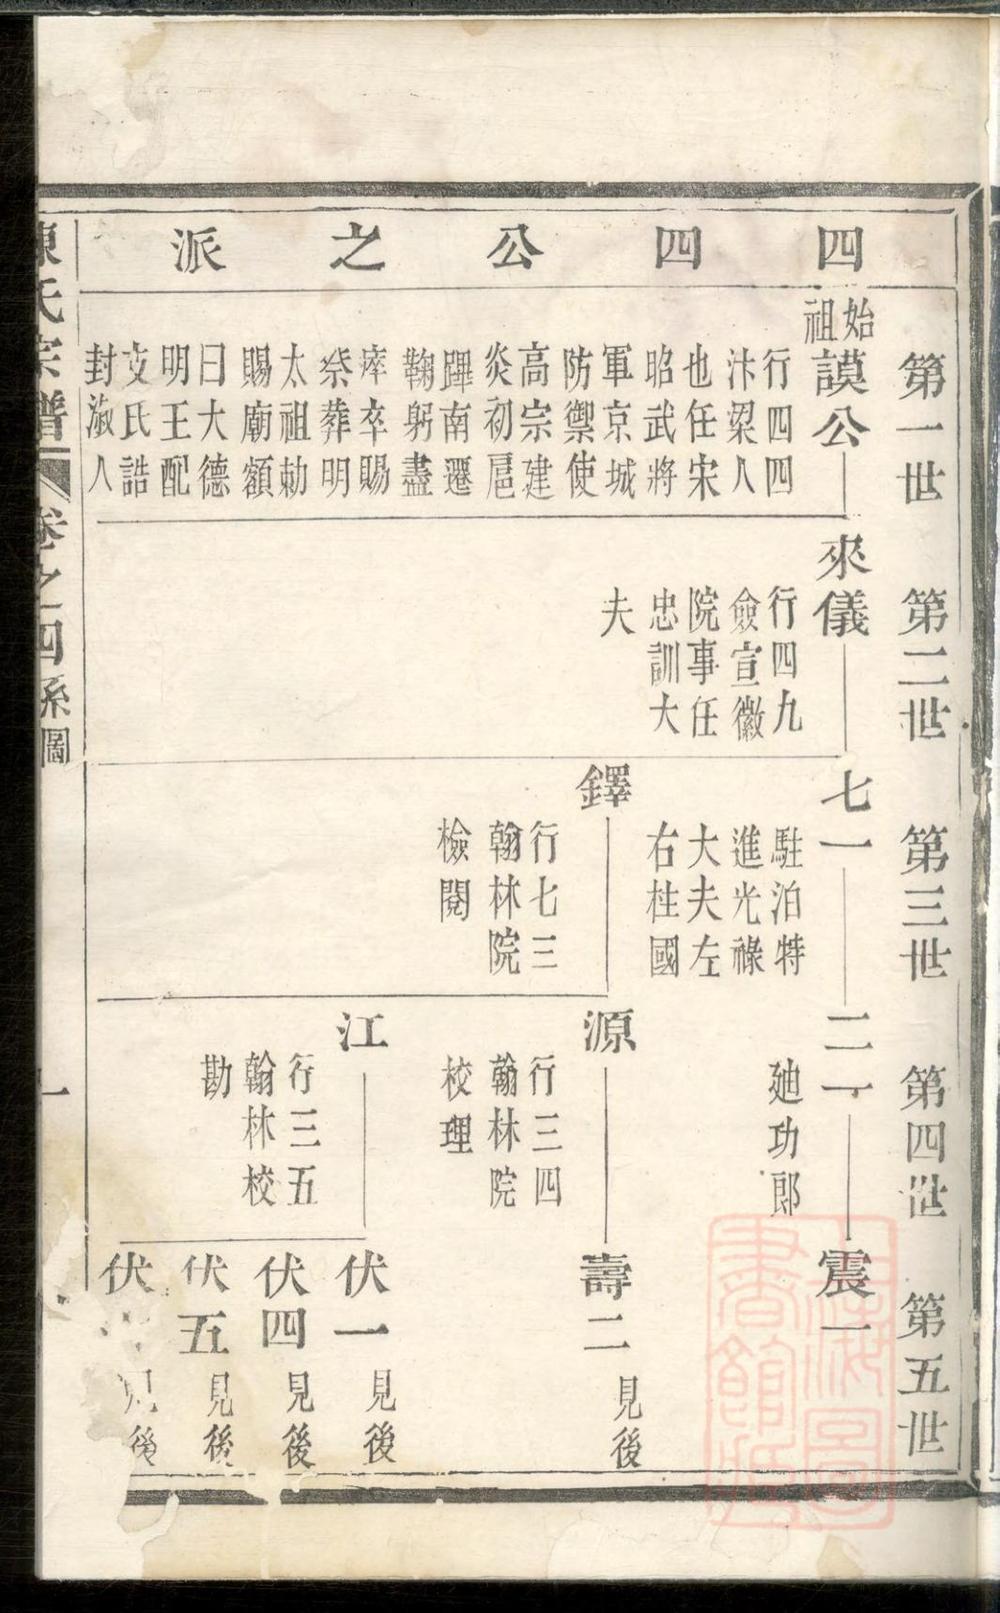 四四公之派
第一世
始祖
謨公
行四四
汴梁人
也任宋
昭武將
軍京城
防禦使
高宗建
炎初扈
蹕南遷
鞠躬盡
瘁卒賜
祭葬明
太祖勅
賜廟額
曰大德
明王配
支氏誥
封淑人
第二世
來儀
行四九
僉宣徽
院事任
忠訓大
夫
第三世
七一
駐泊特
進光祿
大夫左
右柱國
鐸
行七三
翰林院
檢閱
第四世
二一
廸功郎
源
行三四
翰林院
校理
江
行三五
翰林校
勘
第五世
震一
壽二
見後
伏一
見後
伏四
見後
伏五
見後
伏
見後
陳氏宗譜
卷之四系圖
一
上海圖書館藏